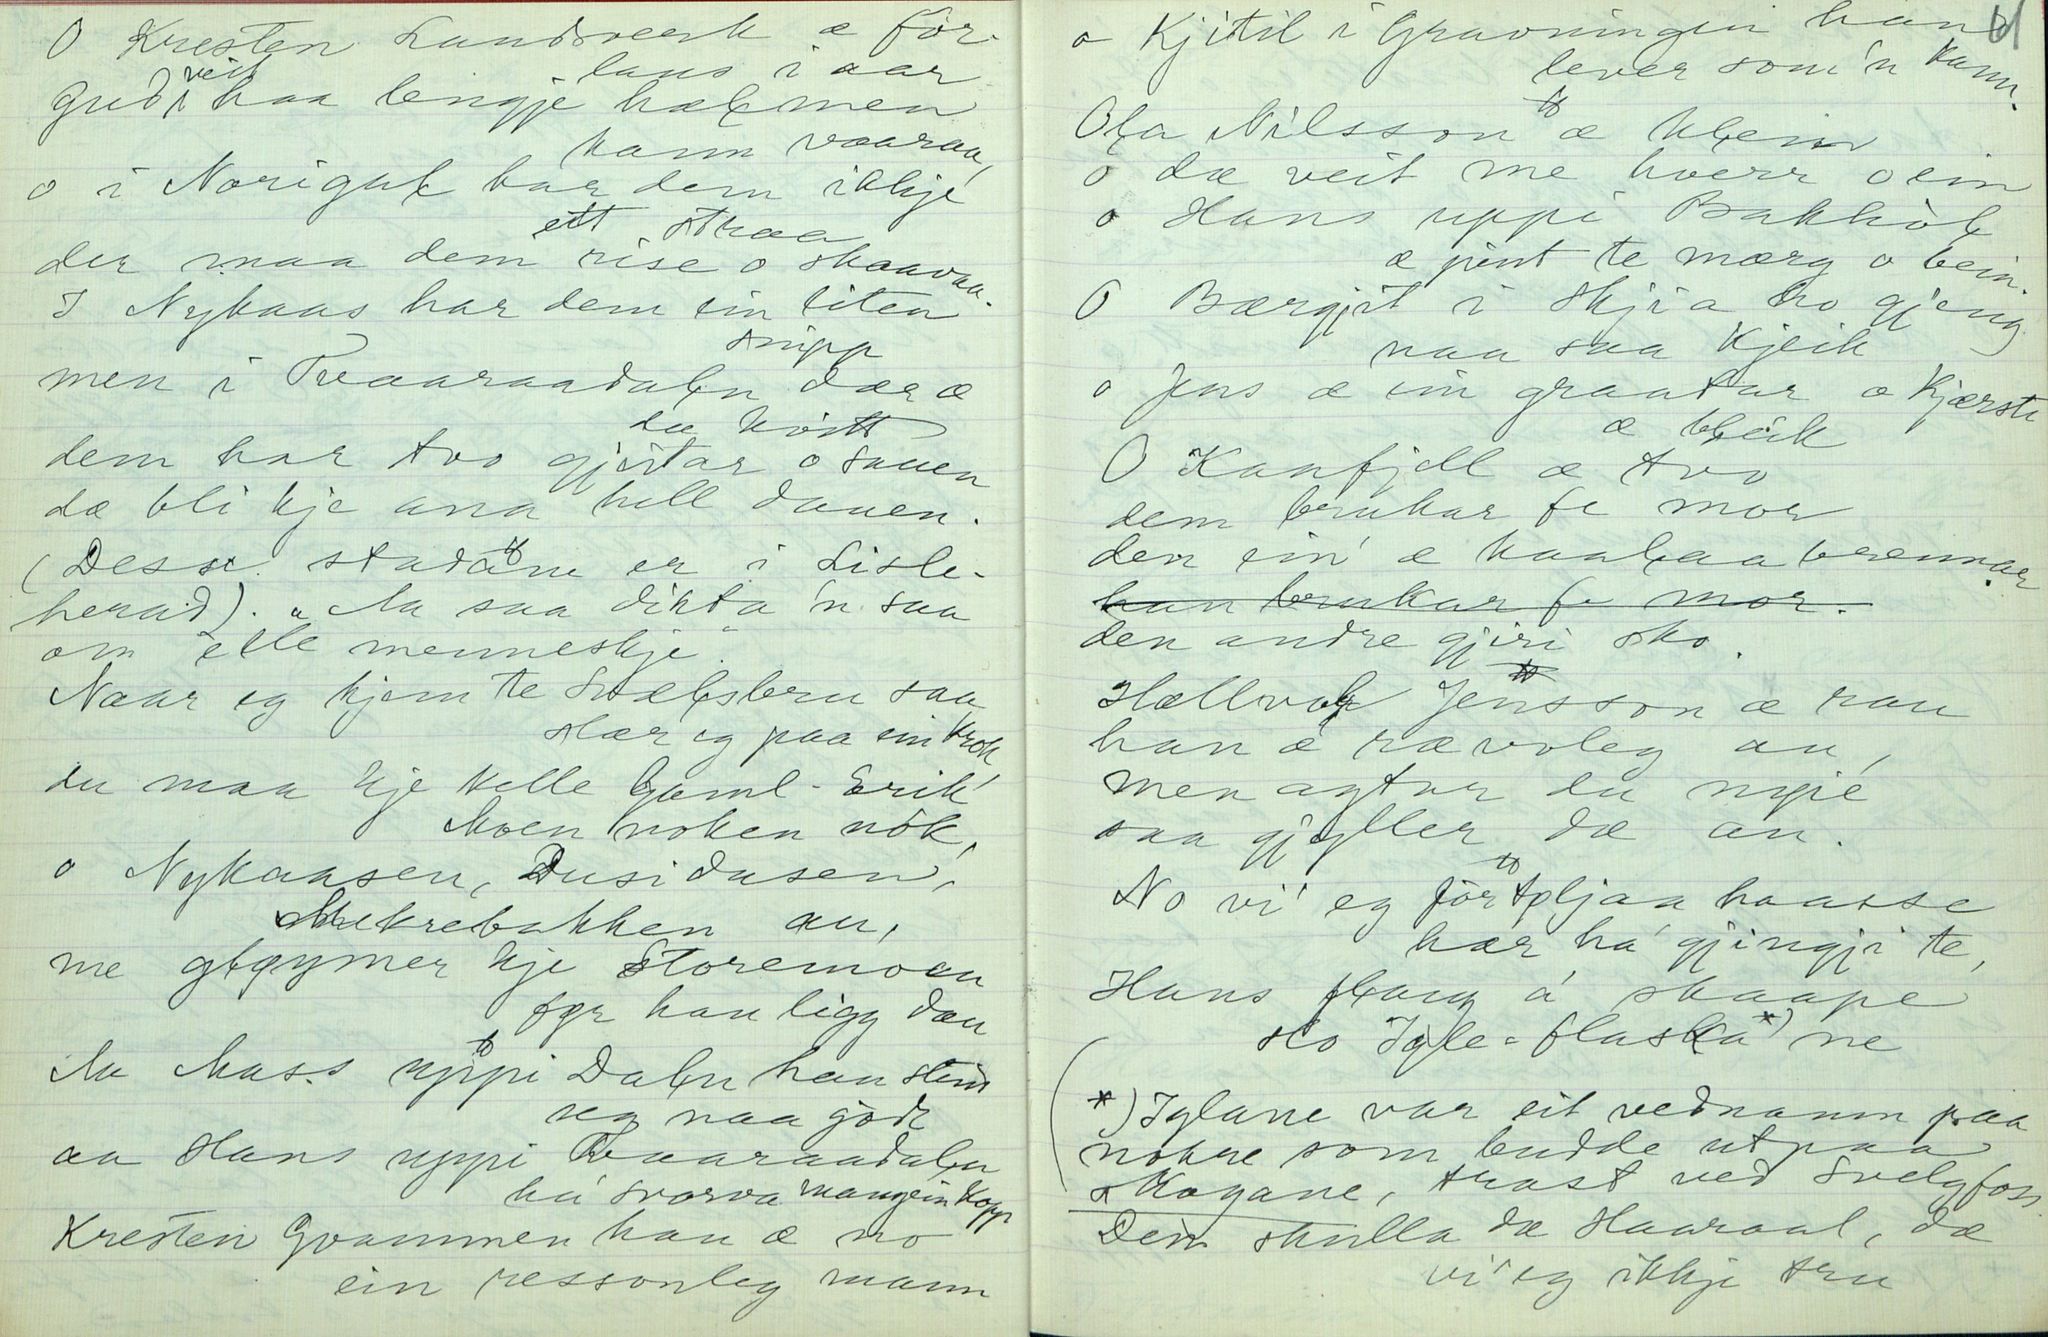 O Kresten Landsverk æ før-
laus i aar
Gud veit haa lengje hælmen
kann vaaraa,
o i Norigal har dem ikkje
ett straa
der maa dem rise o skaavaa.
I Nykaas har dem ein liten
snipp
men i Tvaaraadaln dær æ
du kvitt
dem har tvo gjeitar o sauen
dæ bli kje ana hell dauen.
(Desse stadane er i Lisle-
herad). "Aa saa dikta 'n saa
om elle menneskje".
Naar eg kjem te Svælsbru saa
slær eg paa ein krok
du maa kje kelle Gaml-Erik
Moen noken nòk,
o Nykaasen, Dusidusen,
Mukrebakken au,
me gløymer kje Storemoen
før han ligg dau
Aa Mass uppi Daln han stend
seg naa godt
aa Hans uppi Tvaaraadaln
ha svorva mangein kopp
Kresten Gvammen han æ no
ein ressonleg mann
61
o Kjitil i Gravningen han
lever som 'n kann.
Ola Nilsson æ klein
o dæ veit me hverr o ein
o Hans uppi Bakhòl
æ pint te mærg o bein.
O Bærgjit i Skjia ho gjeng
naa saa kjeik
o Jens æ ein graatar o Kjærsti
æ bleik
O Kanfjell æ tvo
dem brukar fe mor
den ein' æ kaalaabrennar
han brukar fe mor.
den andre gjiri sko.
Hællvor Jensson æ rau
han æ rævoleg au,
men agtar du nyie
saa gjeller dæ au.
No vi' eg førtæljaa haasse
hær ha' gjingji te,
Hans flaug á skaape
slo Igle-flaska*) ne
*) Iglane var eit vednamn paa
nokre som budde utpaa
skogane, trast ved Svelgfoss.
Dem skulla dæ Haaraal, dæ
vi' eg ikkje tru